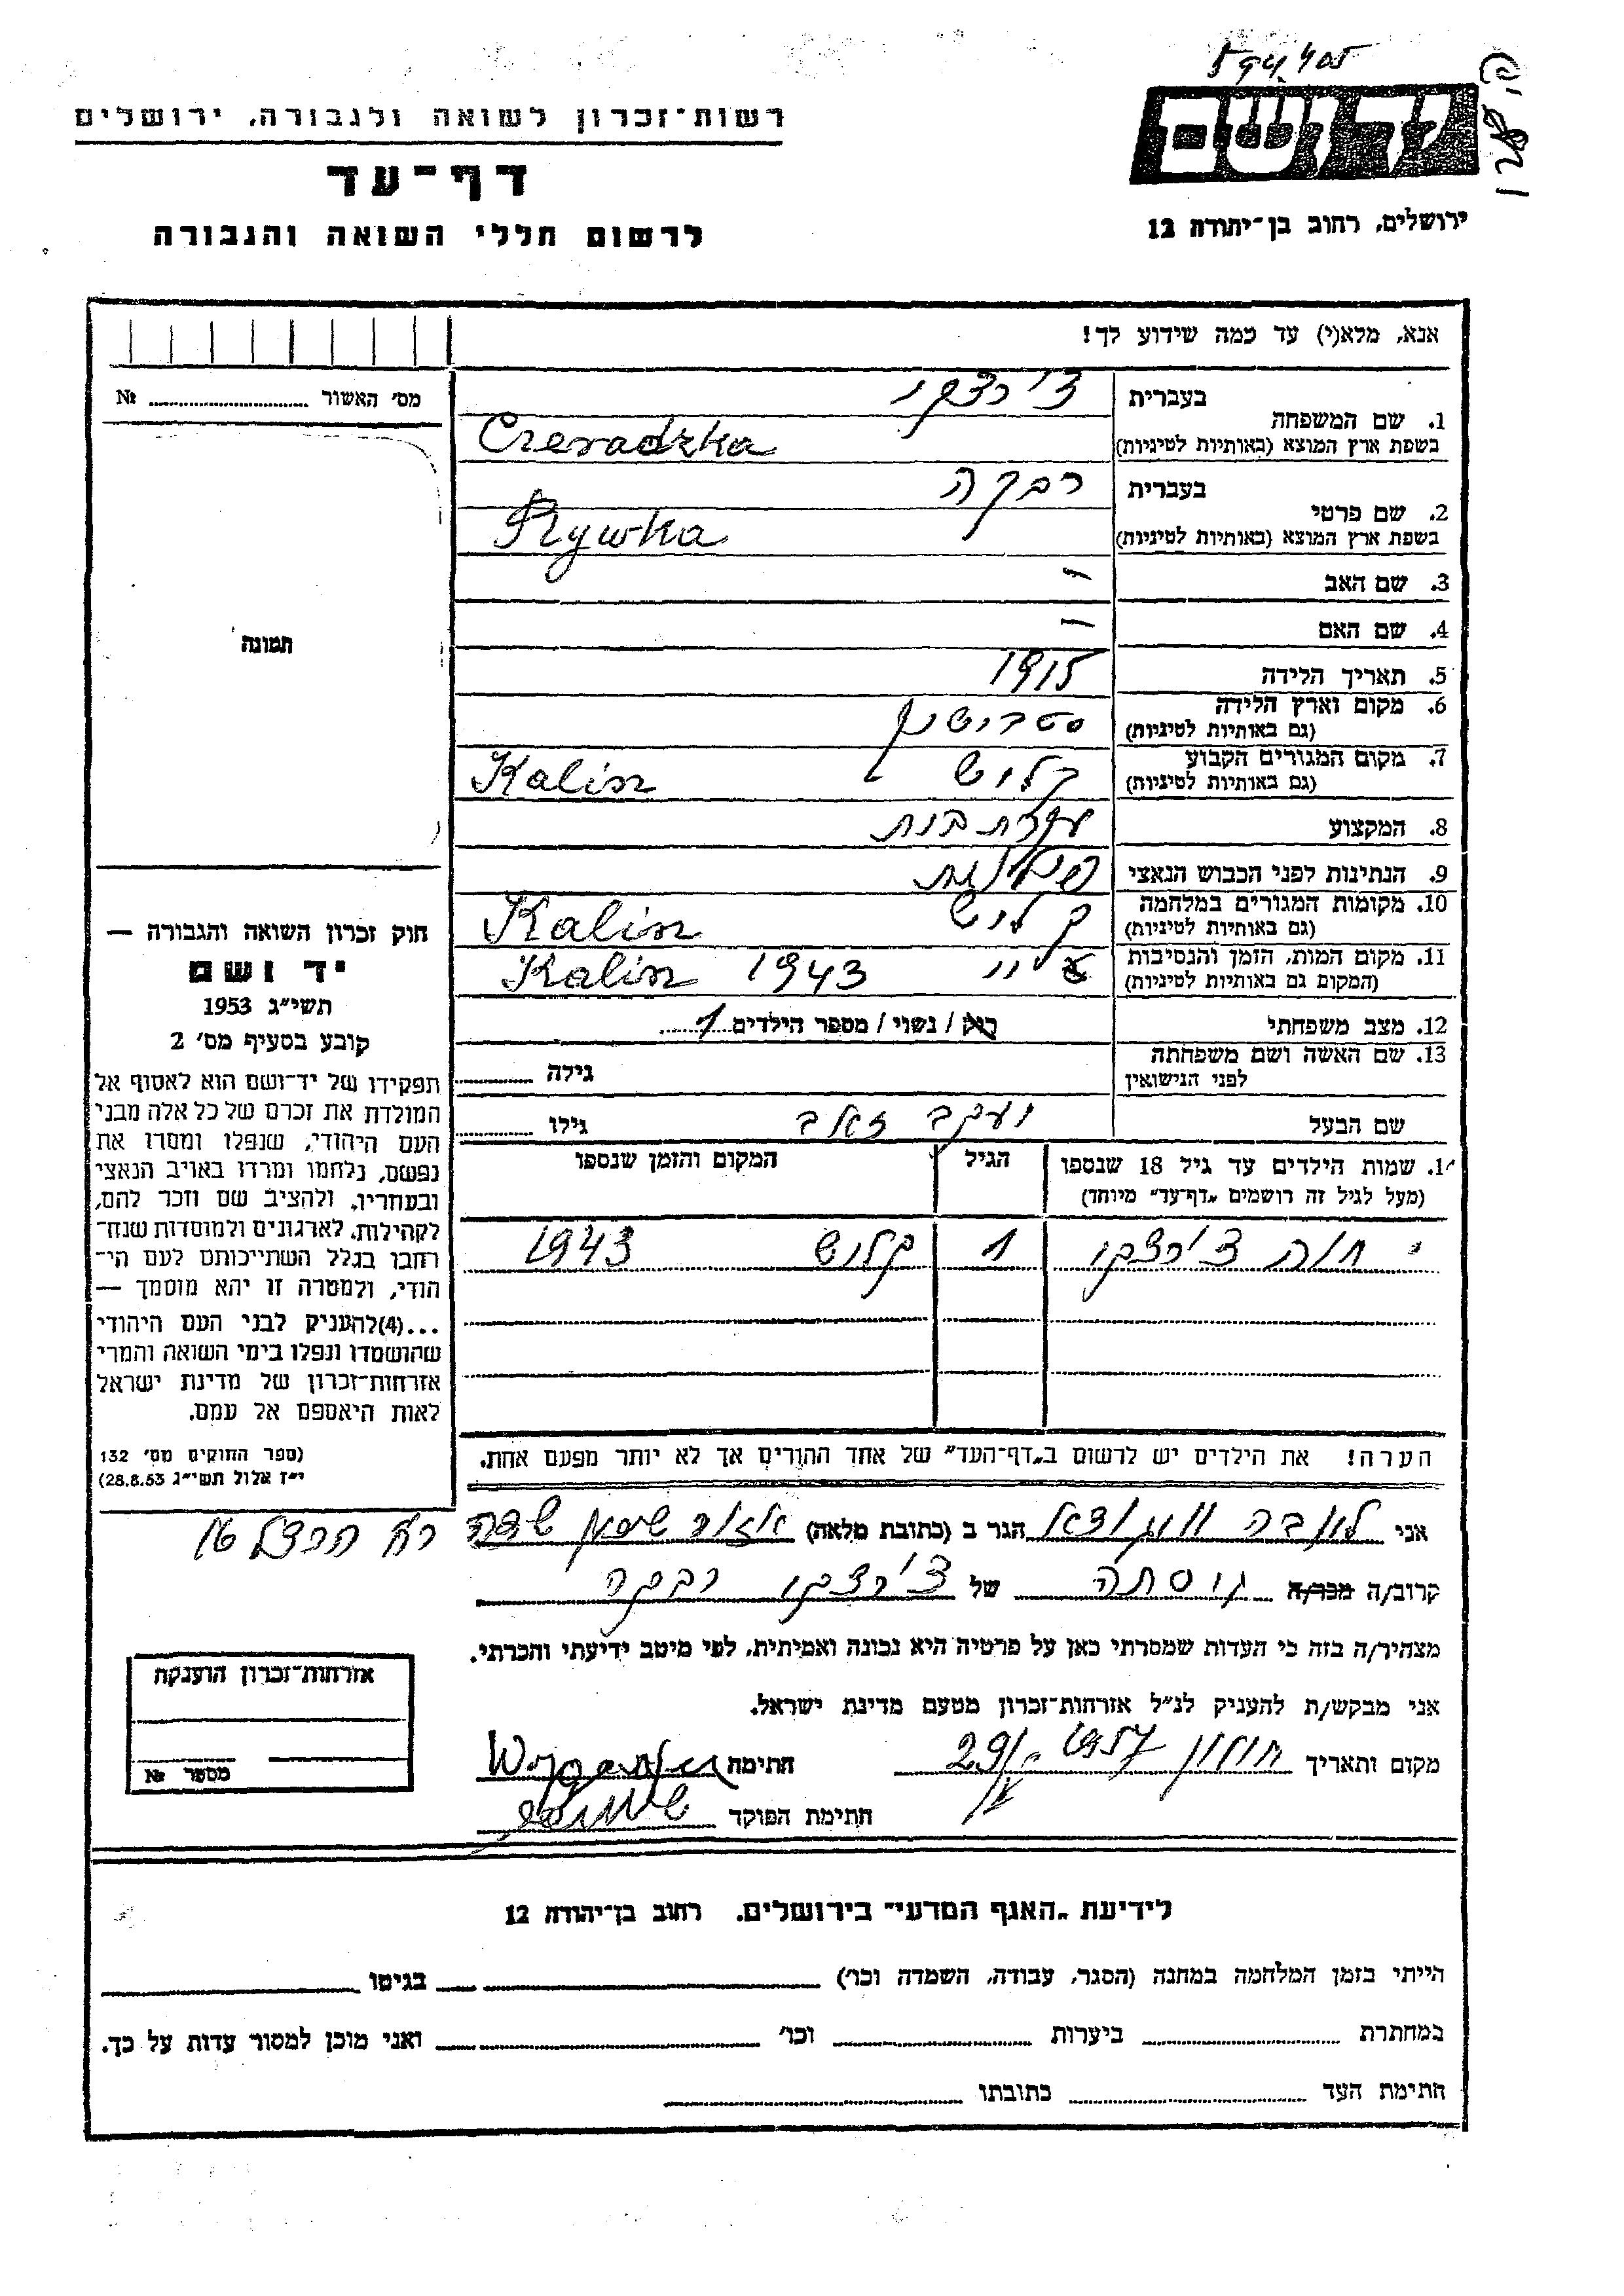 רשות־זכרון לשואה ולגבורה, ירושלים
דף־עד
לרשום חללי השואה והגבורה
יד ושם
ירושלים, רחוב בן־יהודה 12
אנא, מלא(י) עד כמה שידוע לך!
מס׳ האשור № 
תמונה
1. שם המשפחה
בעברית צ'רצקי
בשפת ארץ המוצא (באותיות לטיניות) Czeradzka
2. שם פרטי
בעברית רבקה
בשפת ארץ המוצא (באותיות לטיניות) Rywka
3. שם האב –
4. שם האם –
5. תאריך הלידה 1915
6. מקום וארץ הלידה
(גם באותיות לטיניות)
7. מקום המגורים הקבוע קליש Kalisz
(גם באותיות לטיניות)
8. המקצוע עקרת בית
9. הנתינות לפני הכבוש הנאצי פולנית
10. מקומות המגורים במלחמה קליש Kalisz
(גם באותיות לטיניות)
11. מקום המות, הזמן והנסיבות 1943 Kalisz
(המקום גם באותיות לטיניות)
12. מצב משפחתי רוק / נשוי / מספר הילדים 1
13. שם האשה ושם משפחתה
לפני הנישואין גילה
שם הבעל יעקב זאב גילו
14. שמות הילדים עד גיל 18 שנספו הגיל המקום והזמן שנספו
(מעל לגיל זה רושמים „דף־עד״ מיוחד)
חוה צ'רצקי 1 קליש 1943
הערה! את הילדים יש לרשום ב„דף־העד״ של אחד ההורים אך לא יותר מפעם אחת.
חוק זכרון השואה והגבורה —
יד ושם
תשי״ג 1953
קובע בסעיף מס׳ 2
תפקידו של יד־ושם הוא לאסוף אל
המולדת את זכרם של כל אלה מבני
העם היהודי, שנפלו ומסרו את
נפשם, נלחמו ומרדו באויב הנאצי
ובעוזריו, ולהציב שם וזכר להם,
לקהילות, לארגונים ולמוסדות שנח־
רחבו בגלל השתייכותם לעם הי־
הודי, ולמטרה זו יהא מוסמך —
...(4)להעניק לבני העם היהודי
שהושמדו ונפלו בימי השואה והמרי
אזרחות־זכרון של מדינת ישראל
לאות היאספם אל עמם.
(ספר החוקים מס׳ 132
י״ז אלול תשי״ג 28.8.53)
אני הגר ב (כתובת מלאה) רח הרצל 16
קרוב/ה מכר/ה גיסתה של צ'רצקי רבקה
מצהיר/ה בזה כי העדות שמסרתי כאן על פרטיה היא נכונה ואמיתית, לפי מיטב ידיעתי והכרתי.
אני מבקש/ת להעניק לנ״ל אזרחות־זכרון מטעם מדינת ישראל.
מקום ותאריך חולון 1957 29/ חתימה
חתימת הפוקד
אזרחות־זכרון הוענקה
מספר №
לידיעת „האגף המדעי״ בירושלים, רחוב בן־יהודה 12
הייתי בזמן המלחמה במחנה (הסגר, עבודה, השמדה וכו׳) בגיטו
במחתרת ביערות וכו׳ ואני מוכן למסור עדות על כך.
חתימת העד כתובתו